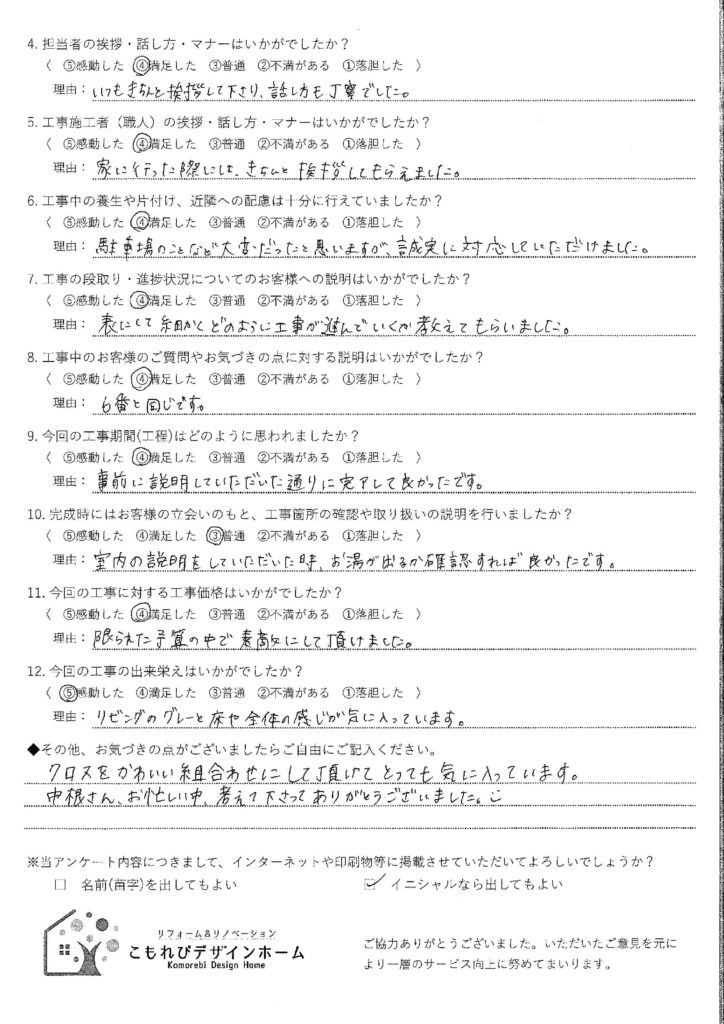 4. 担当者の挨拶・話し方・マナーはいかがでしたか？
〈 ⑤感動した ④満足した ③普通 ②不満がある ①落胆した 〉
理由： いつもきちんと挨拶して下さり、話し方も丁寧でした。
5. 工事施工者（職人）の挨拶・話し方・マナーはいかがでしたか？
〈 ⑤感動した ④満足した ③普通 ②不満がある ①落胆した 〉
理由： 家に行った際には、きちんと挨拶してもらえました。
6. 工事中の養生や片付け、近隣への配慮は十分に行えていましたか？
〈 ⑤感動した ④満足した ③普通 ②不満がある ①落胆した 〉
理由： 駐車場のことなど大変だったと思いますが、誠実に対応していただけました。
7. 工事の段取り・進捗状況についてのお客様への説明はいかがでしたか？
〈 ⑤感動した ④満足した ③普通 ②不満がある ①落胆した 〉
理由： 表にして細かくどのように工事が進んでいくか教えてもらいました。
8. 工事中のお客様のご質問やお気づきの点に対する説明はいかがでしたか？
〈 ⑤感動した ④満足した ③普通 ②不満がある ①落胆した 〉
理由： 6番と同じです。
9. 今回の工事期間(工程)はどのように思われましたか？
〈 ⑤感動した ④満足した ③普通 ②不満がある ①落胆した 〉
理由： 事前に説明していただいた通りに完了して良かったです。
10. 完成時にはお客様の立会いのもと、工事箇所の確認や取り扱いの説明を行いましたか？
〈 ⑤感動した ④満足した ③普通 ②不満がある ①落胆した 〉
理由： 室内の説明をしていただいた時、お湯が出るか確認すれば良かったです。
11. 今回の工事に対する工事価格はいかがでしたか？
〈 ⑤感動した ④満足した ③普通 ②不満がある ①落胆した 〉
理由： 限られた予算の中で素敵にして頂けました。
12. 今回の工事の出来栄えはいかがでしたか？
〈 ⑤感動した ④満足した ③普通 ②不満がある ①落胆した 〉
理由： リビングのグレーと床や全体の感じが気に入っています。
◆その他、お気づきの点がございましたらご自由にご記入ください。
クロスをかわいい組合わせにして頂けてとっても気に入っています。
中根さん、お忙しい中、考えて下さってありがとうございました。
※当アンケート内容につきまして、インターネットや印刷物等に掲載させていただいてよろしいでしょうか？
□ 名前(苗字)を出してもよい ☑ イニシャルなら出してもよい
リフォーム＆リノベーション
こもれびデザインホーム
Komorebi Design Home
ご協力ありがとうございました。いただいたご意見を元に
より一層のサービス向上に努めてまいります。